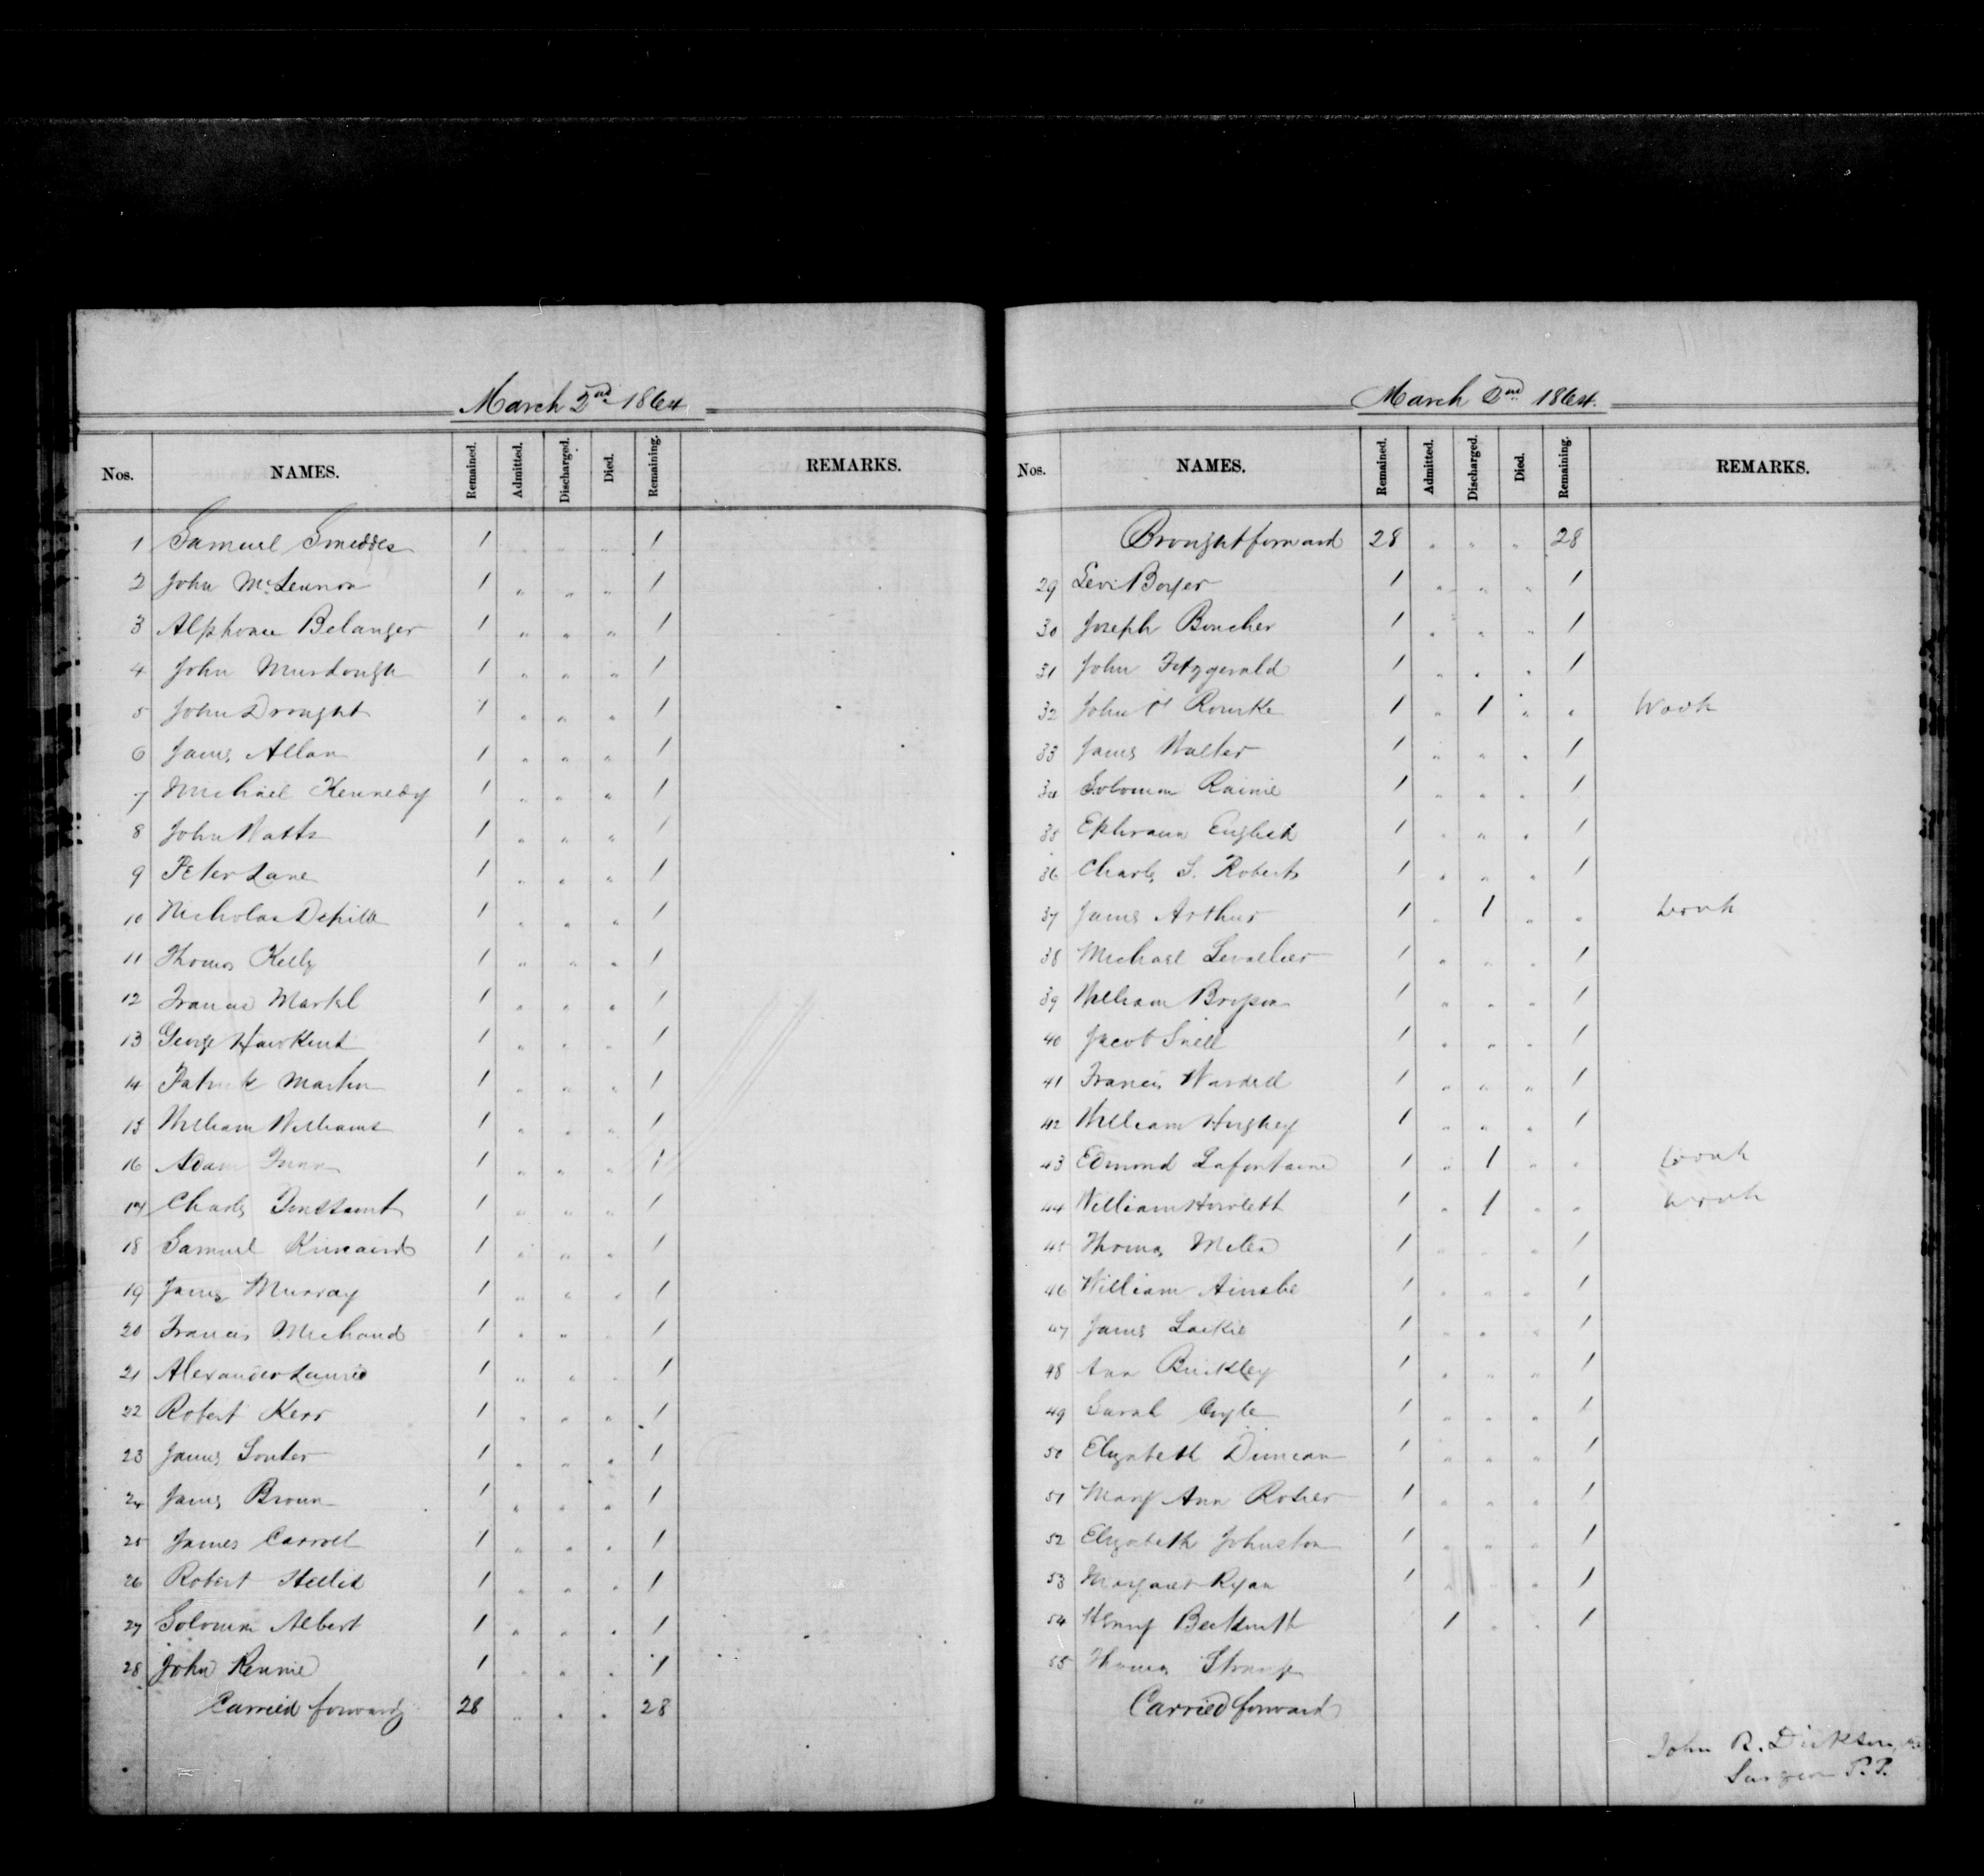 March 2nd 1864
Nos. NAMES. Remained. Admitted. Discharged. Died. Remaining. REMARKS.
1 Samuel Smeddes 1 " " " 1
2 John McLennon 1 " " " 1
3 Alphonse Belanger 1 " " " 1
4 John Murdough 1 " " " 1
5 John Drought 1 " " " 1
6 James Allan 1 " " " 1
7 Michael Kennedy 1 " " " 1
8 John Watts 1 " " " 1
9 Peter Lane 1 " " " 1
10 Nicholas 1 " " " 1
11 Thomas Kelly 1 " " " 1
12 Francis Martel 1 " " " 1
13 George Hawkins 1 " " " 1
14 Patrick Martin 1 " " " 1
15 William Williams 1 " " " 1
16 Adam 1 " " " 1
17 Charles 1 " " " 1
18 Samuel Kincaird 1 " " " 1
19 James Murray 1 " " " 1
20 Francis Michaud 1 " " " 1
21 Alexander Laurie 1 " " " 1
22 Robert Kerr 1 " " " 1
23 James Souter 1 " " " 1
24 James Brown 1 " " " 1
25 James Carroll 1 " " " 1
26 Robert 1 " " " 1
27 Solomon Albert 1 " " " 1
28 John Rennie 1 " " " 1
Carried forward 28 " " " 28
March 2nd 1864.
Nos. NAMES. Remained. Admitted. Discharged. Died. Remaining. REMARKS.
Brought forward 28 " " " 28
29 Levi Boyer 1 " " " 1
30 Joseph Boucher 1 " " " 1
31 John Fitzgerald 1 " " " 1
32 John O'Rourke 1 " 1 " " Work
33 James Walter 1 " " " 1
34 Solomon Rainie 1 " " " 1
35 Ephraim English 1 " " " 1
36 Charles S. Roberts 1 " " " 1
37 James Arthur 1 " 1 " " work
38 Michael Levallier 1 " " " 1
39 William Bryson 1 " " " 1
40 Jacob Snell 1 " " " 1
41 Francis Wardell 1 " " " 1
42 William Hughey 1 " " " 1
43 Edmond Lafontaine 1 " 1 " " work
44 William Howlett 1 " 1 " " work
45 Thomas Miles 1 " " " 1
46 William Ainslie 1 " " " 1
47 James Lackie 1 " " " 1
48 Ann Buckley 1 " " " 1
49 Sarah Coyle 1 " " " 1
50 Elizabeth Duncan 1 " " " 1
51 Mary Ann Rotier 1 " " " 1
52 Elizabeth Johnston 1 " " " 1
53 Margaret Ryan 1 " " " 1
54 Henry Beckwith 1 " " 1
55 Thomas
Carried forward
John R. Dickson, M.D.
Surgeon P.P.